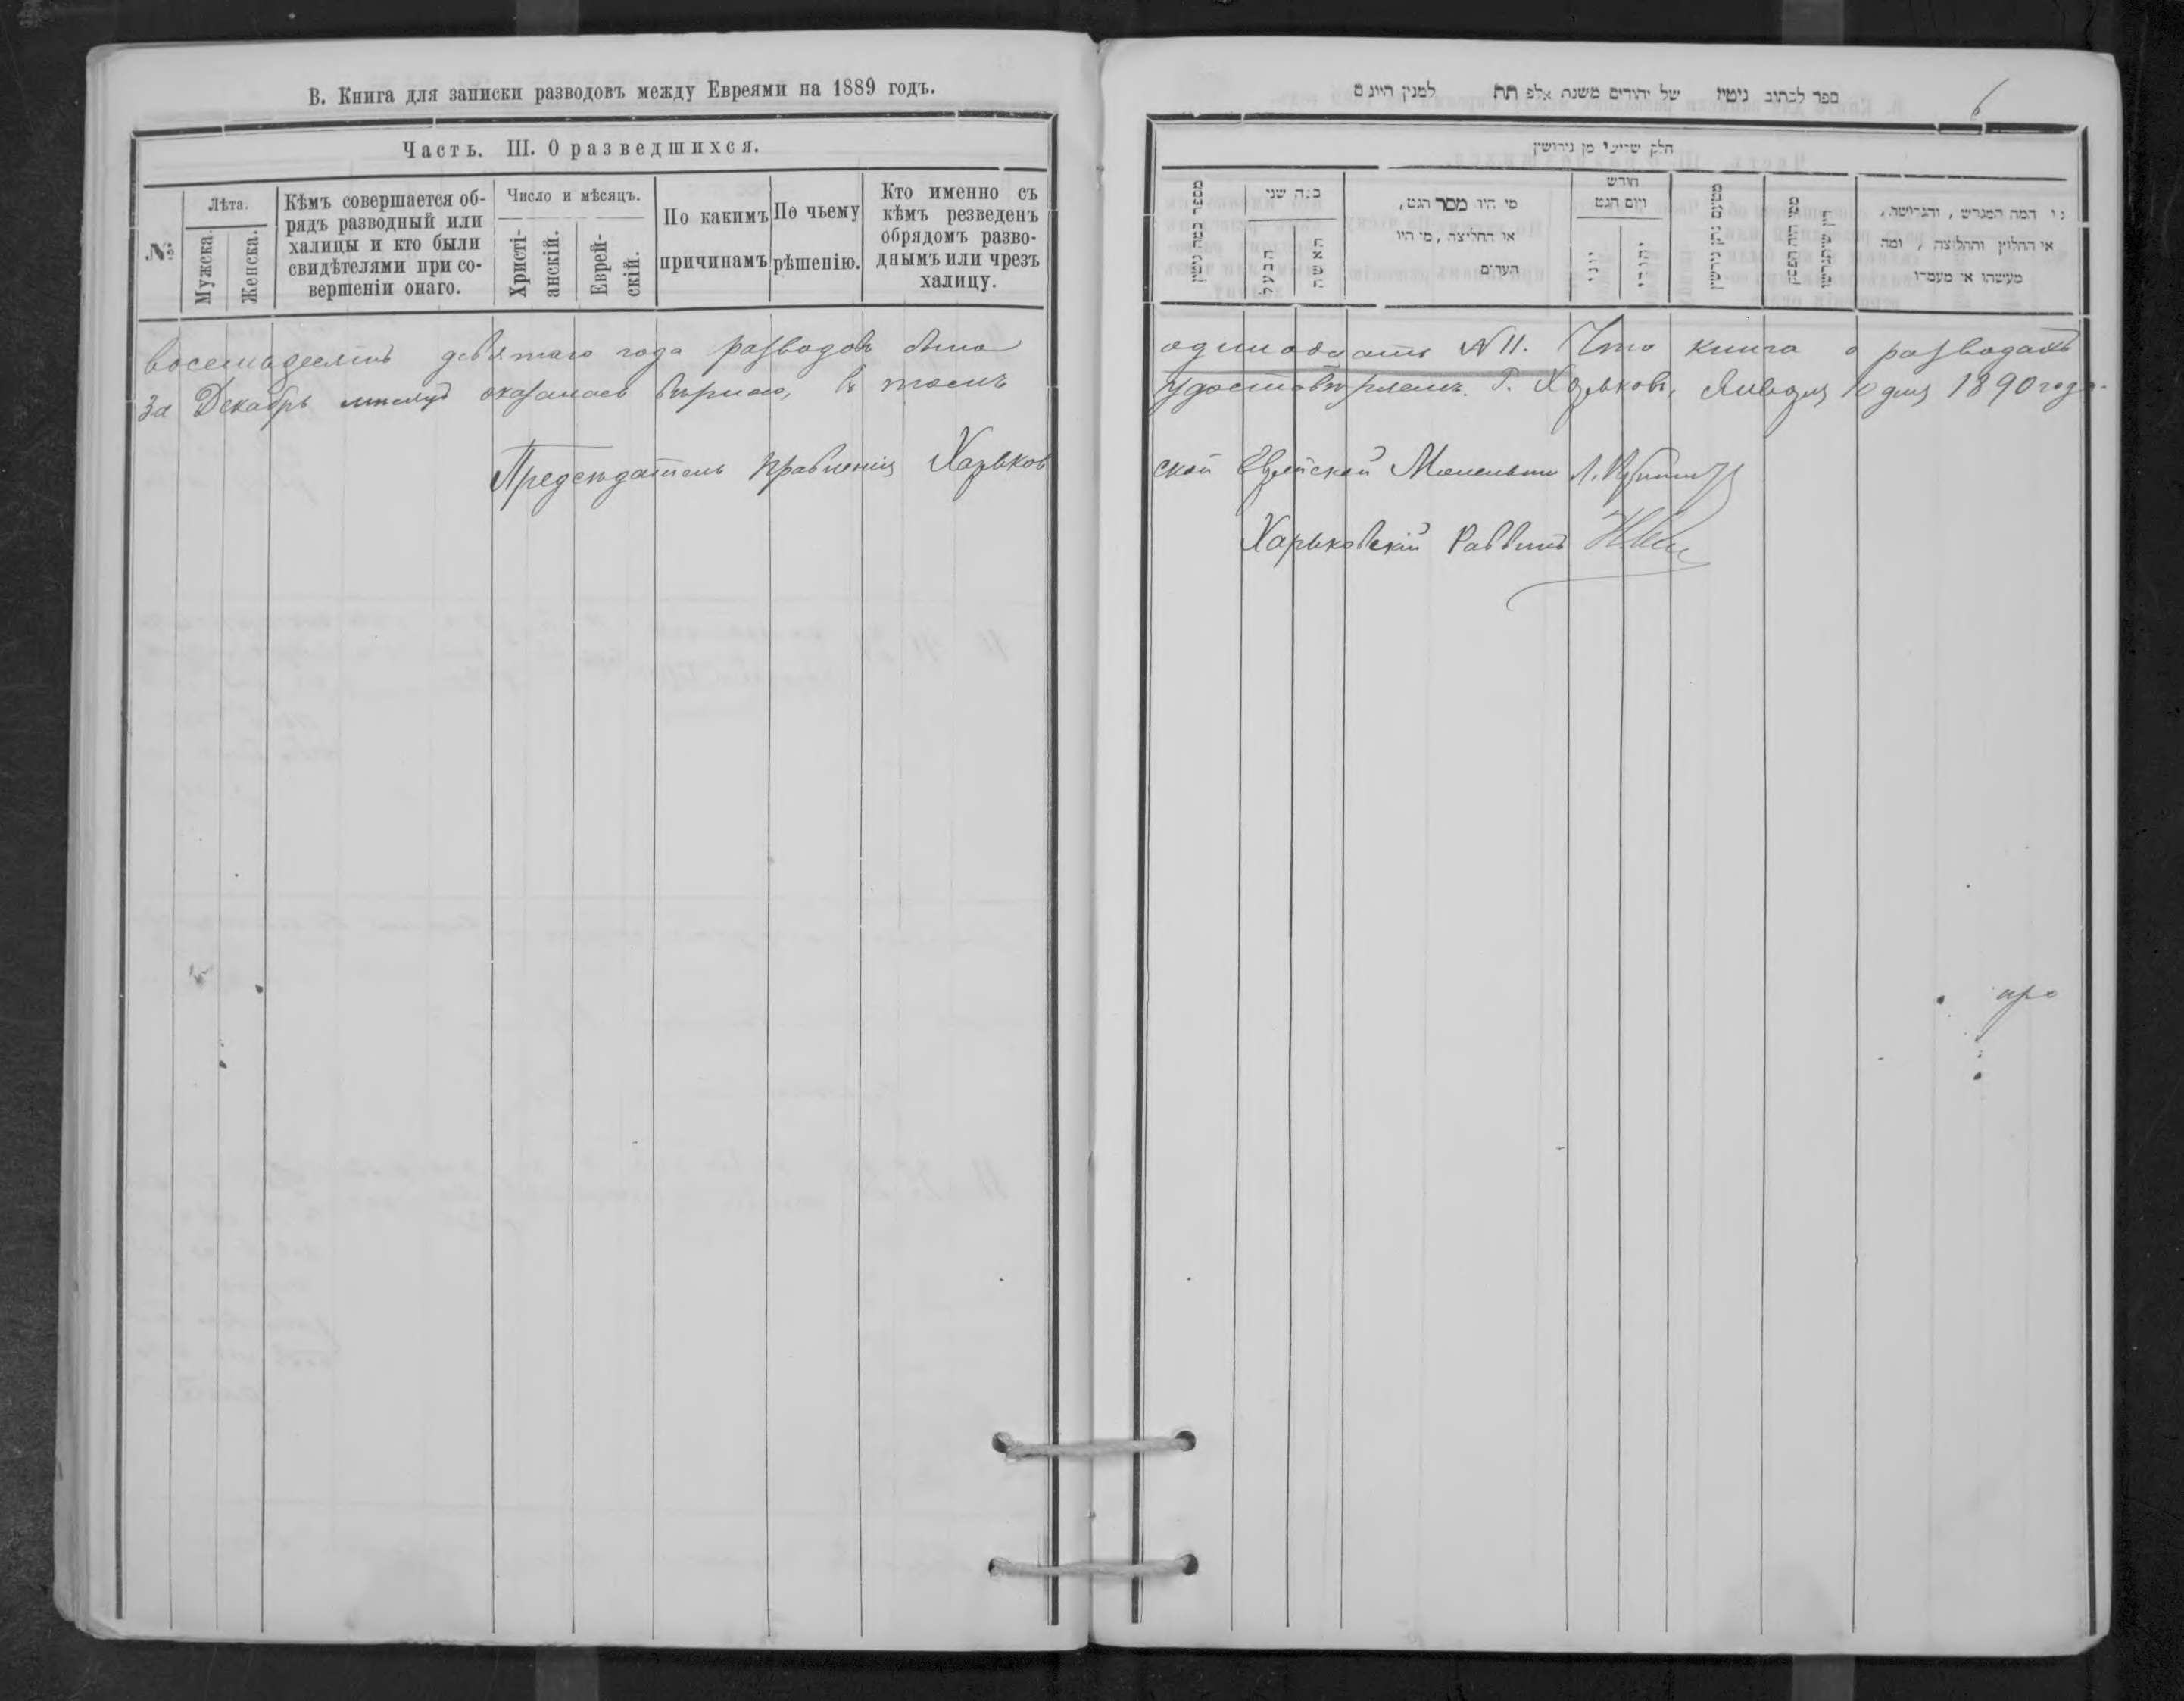 В. Книга для записки разводовъ между Евреями на 1889 годъ.
Часть. III. О разведшихся.
№
Лѣта.
Мужска.
Женска.
Кѣмъ совершается об-
рядъ разводный или
халицы и кто были
свидѣтелями при со-
вершеніи онаго.
Число и мѣсяцъ.
Христі-
анскій.
Еврей-
скій.
По какимъ
причинамъ
По чьему
рѣшенію.
Кто именно съ
кѣмъ резведенъ
обрядомъ разво-
днымъ или чрезъ
халицу.
восемьдесятъ девятаго года разводовъ было
за Декабрь мѣсяцъ оказалась вѣрною, въ томъ
Предсѣдатель Правленія Харьков
6
ספר לכתוב גיטין של יהודים משנת אלפ תת למנין היונים
חלק שלישי מן גירושין
מספר כמה גיטין
כמה שני
הבעל
האשה
מי היו מסר הגט,
או החליצה, מי היו
העדים
חודש
ויום הגט
יוני
יהודי
מטעם נתן גירושין
מי היה הפסק
דין שיתגרשו
מי המה המגרש, והגרושה,
או החלוץ והחלוצה, ומה
מעשהו או מעמדו
одинадцать № 11. Что книга о разводахъ
удостовѣряемъ. Г. Харьковъ, Января 10 дня 1890 года.
ской Еврейской Молельни
Харьковскій Раввинъ